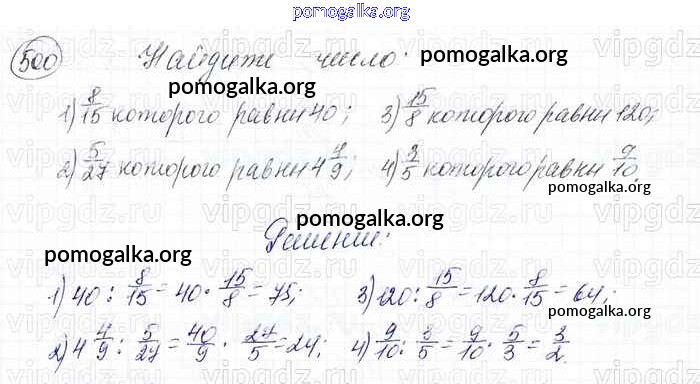 pomogalka.org
500 Найдите число. pomogalka.org
pomogalka.org
1) 8/15 которого равны 40; 3) 15/8 которого равны 120;
2) 5/27 которого равны 4 4/9; 4) 3/5 которого равны 9/10.
pomogalka.org pomogalka.org
pomogalka.org
Решение:
pomogalka.org
1) 40 : 8/15 = 40 · 15/8 = 75; 3) 120 : 15/8 = 120 · 8/15 = 64;
pomogalka.org
2) 4 4/9 : 5/27 = 40/9 · 27/5 = 24; 4) 9/10 : 3/5 = 9/10 · 5/3 = 3/2.
pomogalka.org